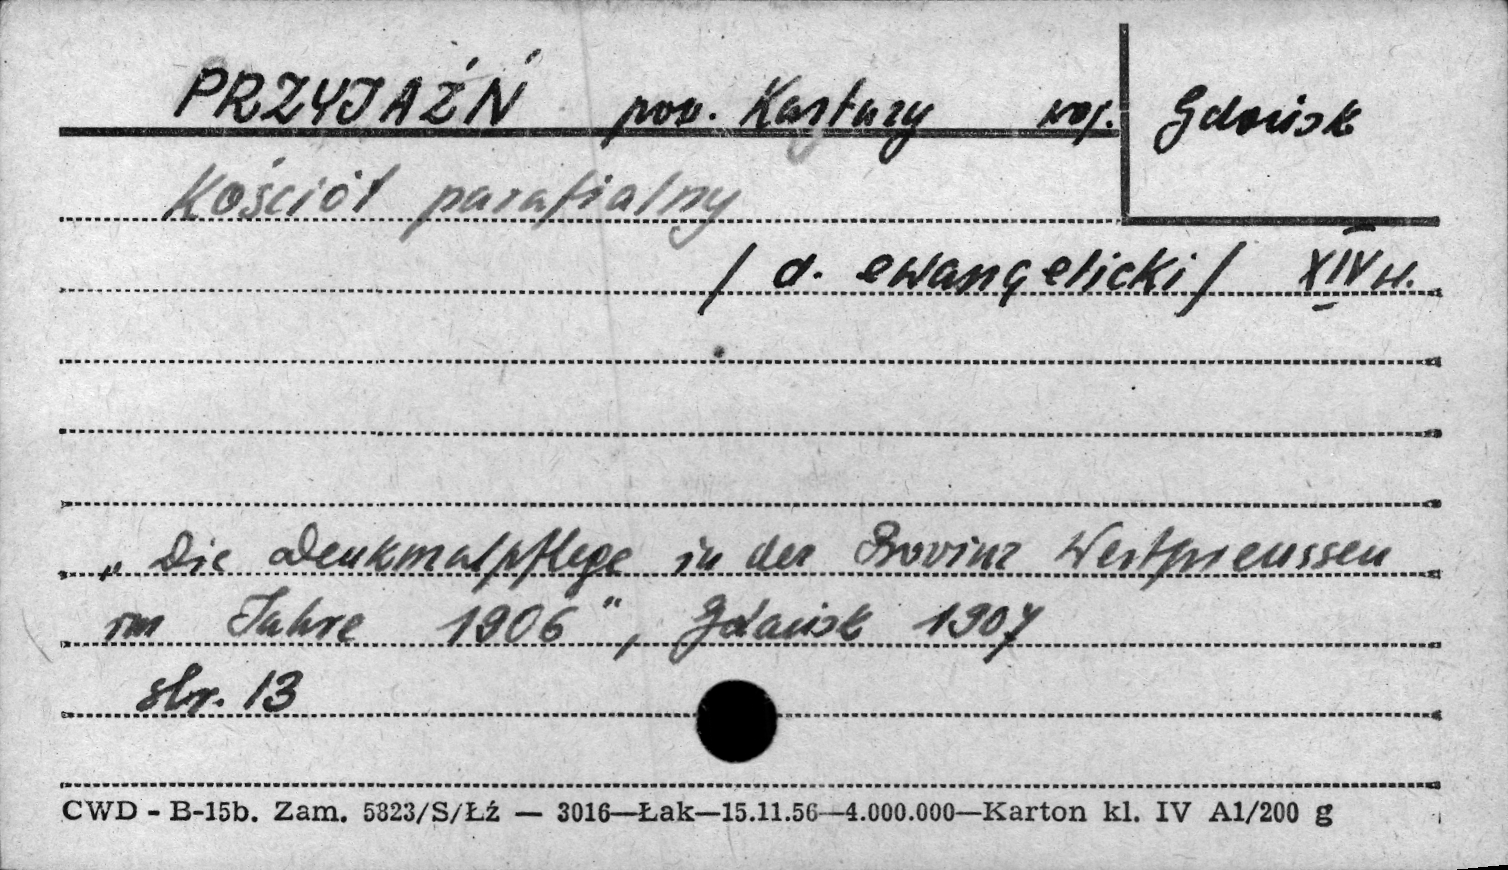 PRZYJAŹŃ pow. Kartuzy woj. Gdańsk
Kościół parafialny
/ d. ewangelicki / XIV w.
„Die Denkmalpflege in der Provinz Westpreussen
im Jahre 1906", Gdańsk 1907
str. 13
CWD - B-15b. Zam. 5823/S/Łź — 3016—Łak—15.11.56—4.000.000—Karton kl. IV A1/200 g